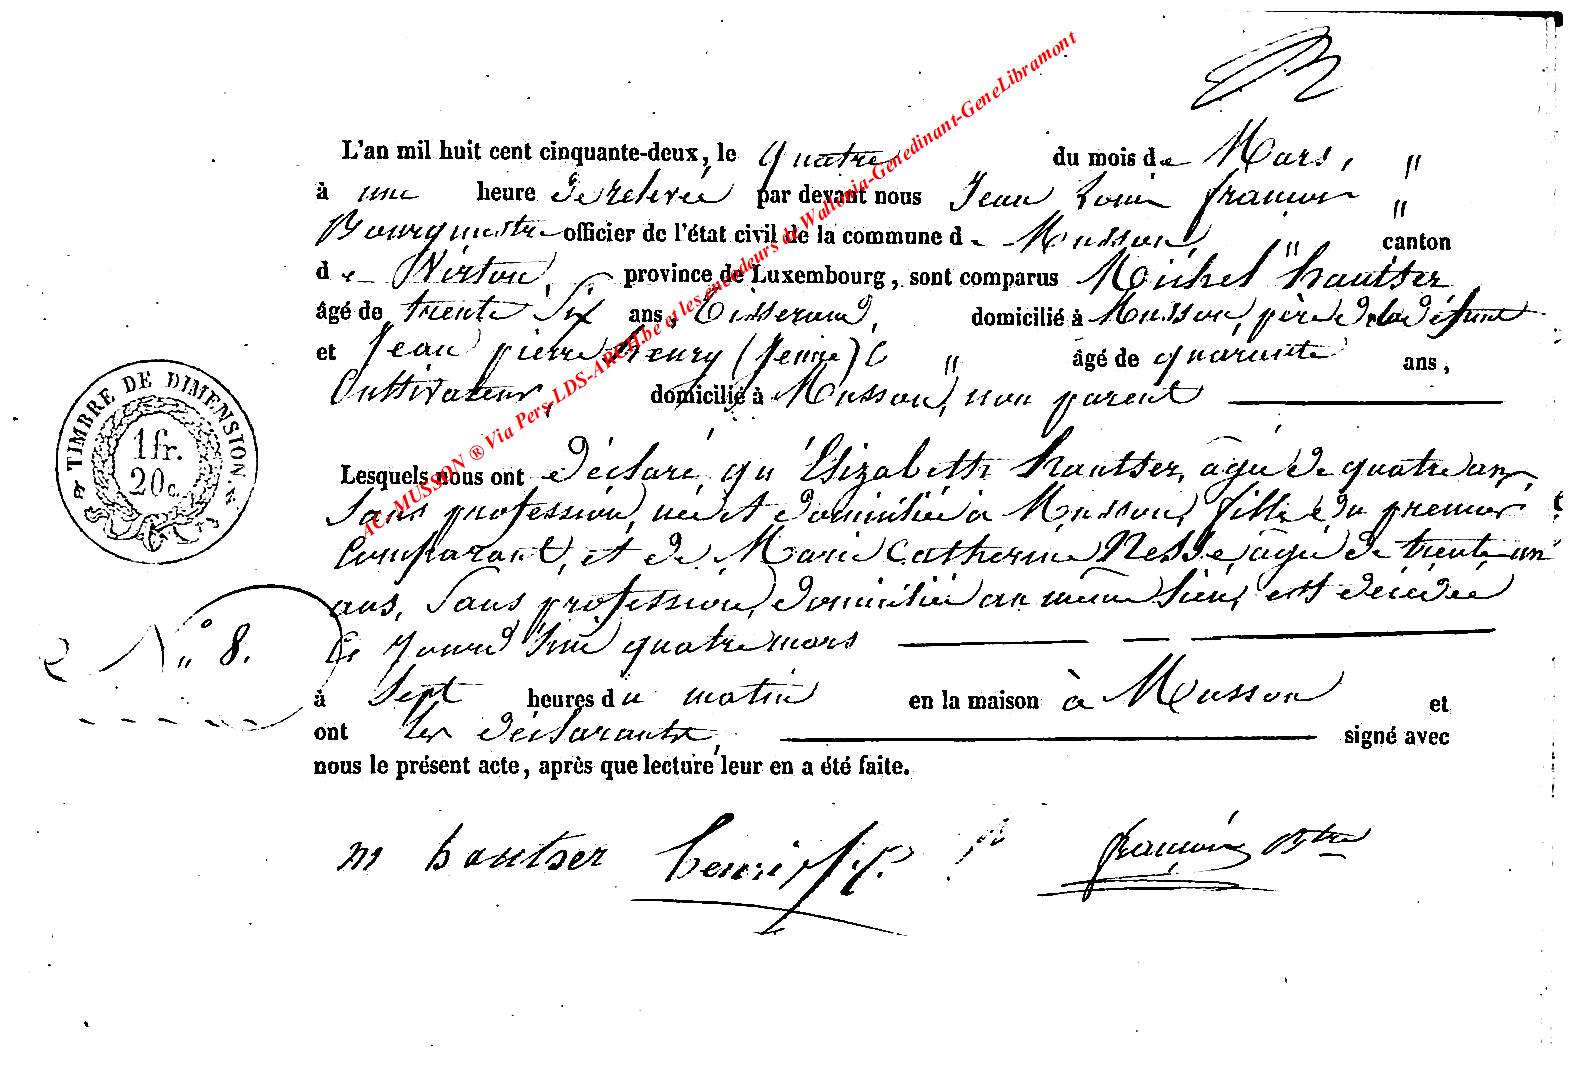 L'an mil huit cent cinquante-deux, le quatre du mois de Mars, "
à une heure de relevée par devant nous Jean Louis françois "
Bourgmestre officier de l'état civil de la commune de Musson, " canton
de Virton, province de Luxembourg, sont comparus Michel hautser
âgé de trente six ans, Tisserand, domicilié à Musson, père de la défunte
et Jean pierre henry (jeune) " âgé de quarante ans,
Cultivateur, domicilié à Musson, non parent
TIMBRE DE DIMENSION.
1 fr.
20 c.
Lesquels nous ont déclaré, qu'Elizabeth hautser, agée de quatre ans,
Sans profession, née et domiciliée à Musson, fille du premier
Comparant, et de Marie Catherine Nesse, agée de trente un
ans, Sans profession, domiciliée au même lieu, est décédée
Ce jourd'hui quatre mars
N° 8.
à Sept heures du matin en la maison à Musson et
ont les déclarants, signé avec
nous le présent acte, après que lecture leur en a été faite.
m hautser henri j.p. françois Btre
AC-MUSSON ® Via Pers-LDS-ARCH.be et les encodeurs de Wallonia-Genedinant-GeneLibramont